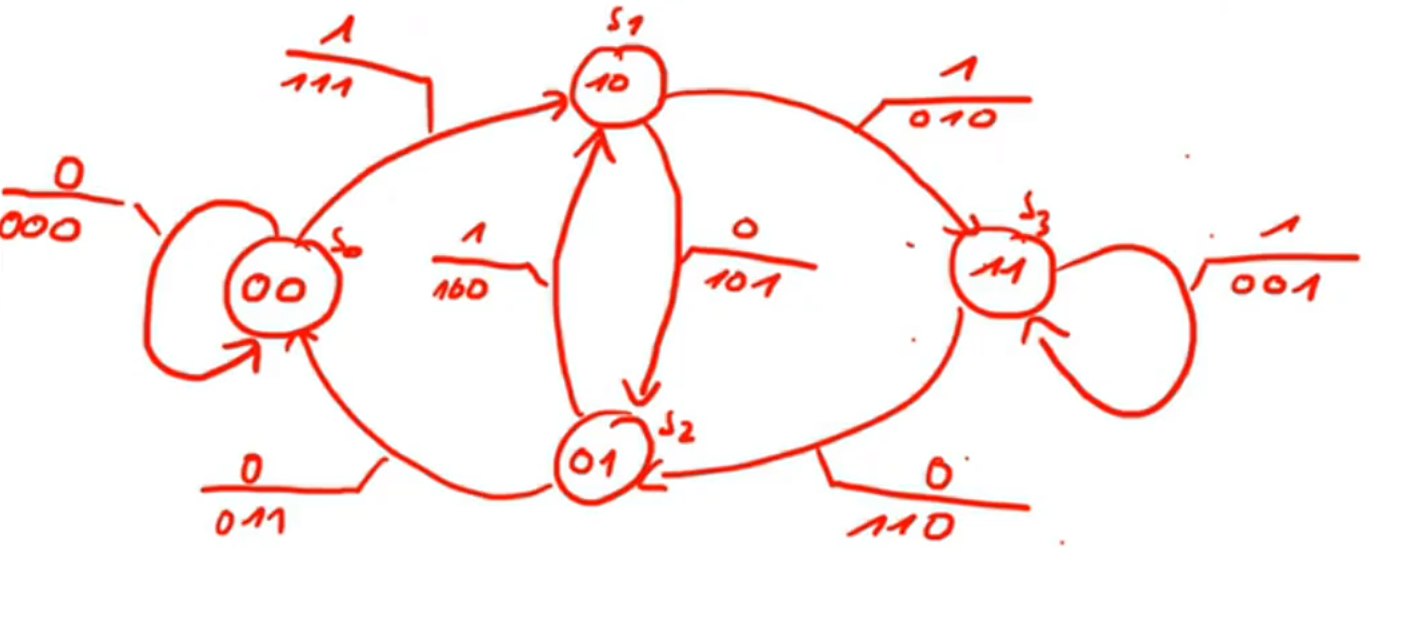 S1
1
111
10
1
010
0
000
S0
00
1
100
0
101
S3
11
1
001
S2
01
0
011
0
110